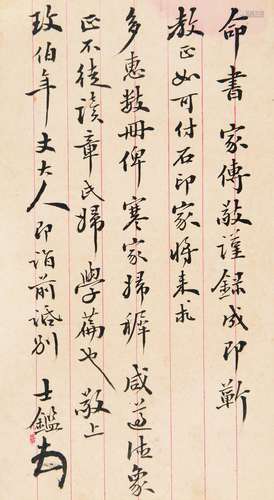 命書 家傳敬謹錄成即蘄
教正如可付石印家將來求
多惠數冊俾寒家婦稺咸遵德象
正不徒讀章氏婦學篇也 敬上
玫伯年丈大人 即詣前話別 士鑑